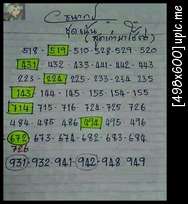 ธนากร
518 - 519 - 510 - 528 - 529 - 520
431 - 432 - 433 - 441 - 442 - 443
223 - 224 - 225 - 233 - 234 - 235
143 - 144 - 145 - 153 - 154 - 155
714 - 715 - 716 - 724 - 725 - 726
484 - 485 - 486 - 494 - 495 - 496
672 - 673 - 674 - 682 - 683 - 684
726
931 - 932 - 941 - 942 - 948 - 949
[498x600] upic.me